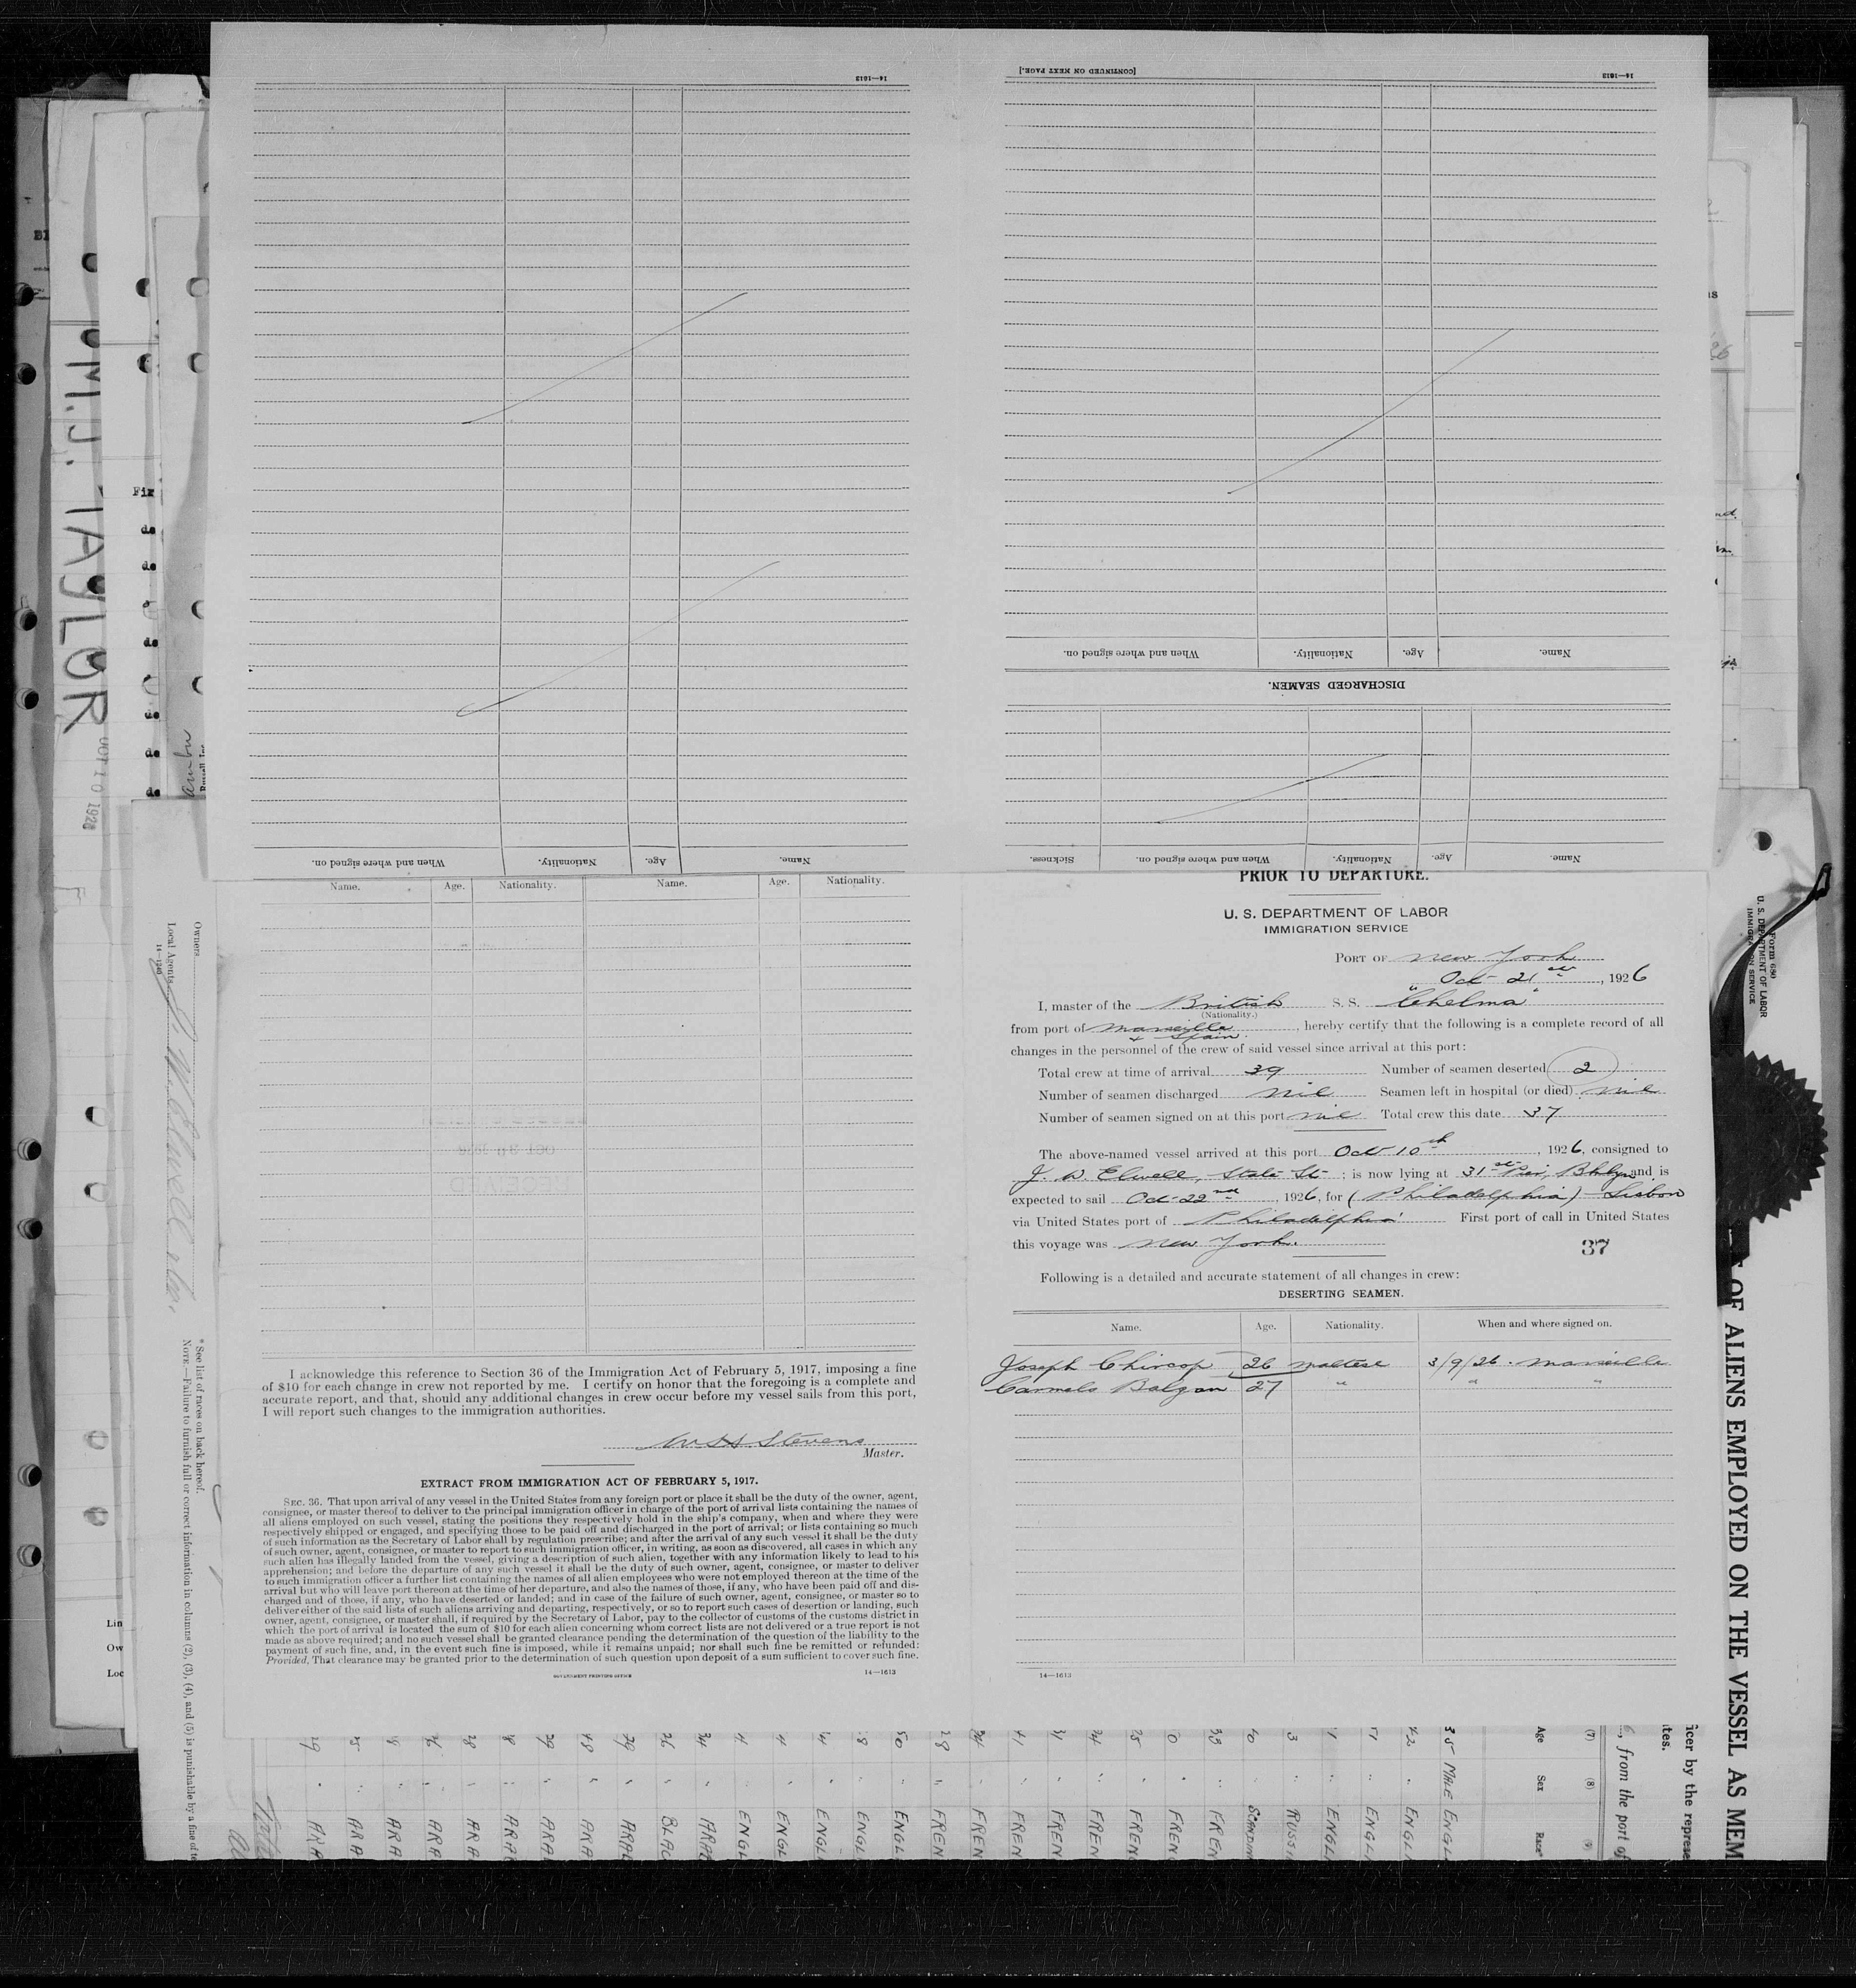 14—1613
[CONTINUED ON NEXT PAGE.]
14—1613
When and where signed on.
Nationality.
Age.
Name.
DISCHARGED SEAMEN.
When and where signed on.
Nationality.
Age.
Name.
Sickness.
When and where signed on.
Nationality.
Age.
Name.
Name. Age. Nationality. Name. Age. Nationality.
I acknowledge this reference to Section 36 of the Immigration Act of February 5, 1917, imposing a fine
of $10 for each change in crew not reported by me. I certify on honor that the foregoing is a complete and
accurate report, and that, should any additional changes in crew occur before my vessel sails from this port,
I will report such changes to the immigration authorities.
Stevens
Master.
EXTRACT FROM IMMIGRATION ACT OF FEBRUARY 5, 1917.
SEC. 36. That upon arrival of any vessel in the United States from any foreign port or place it shall be the duty of the owner, agent,
consignee, or master thereof to deliver to the principal immigration officer in charge of the port of arrival lists containing the names of
all aliens employed on such vessel, stating the positions they respectively hold in the ship's company, when and where they were
respectively shipped or engaged, and specifying those to be paid off and discharged in the port of arrival; or lists containing so much
of such information as the Secretary of Labor shall by regulation prescribe; and after the arrival of any such vessel it shall be the duty
of such owner, agent, consignee, or master to report to such immigration officer, in writing, as soon as discovered, all cases in which any
such alien has illegally landed from the vessel, giving a description of such alien, together with any information likely to lead to his
apprehension; and before the departure of any such vessel it shall be the duty of such owner, agent, consignee, or master to deliver
to such immigration officer a further list containing the names of all alien employees who were not employed thereon at the time of the
arrival but who will leave port thereon at the time of her departure, and also the names of those, if any, who have been paid off and dis-
charged and of those, if any, who have deserted or landed; and in case of the failure of such owner, agent, consignee, or master so to
deliver either of the said lists of such aliens arriving and departing, respectively, or so to report such cases of desertion or landing, such
owner, agent, consignee, or master shall, if required by the Secretary of Labor, pay to the collector of customs of the customs district in
which the port of arrival is located the sum of $10 for each alien concerning whom correct lists are not delivered or a true report is not
made as above required; and no such vessel shall be granted clearance pending the determination of the question of the liability to the
payment of such fine, and, in the event such fine is imposed, while it remains unpaid; nor shall such fine be remitted or refunded:
Provided, That clearance may be granted prior to the determination of such question upon deposit of a sum sufficient to cover such fine.
GOVERNMENT PRINTING OFFICE 14—1613
PRIOR TO DEPARTURE.
U. S. DEPARTMENT OF LABOR
IMMIGRATION SERVICE
PORT OF New York
Oct 21st, 1926
I, master of the British S. S. "Chelma"
(Nationality.)
from port of Marseille & Spain, hereby certify that the following is a complete record of all
changes in the personnel of the crew of said vessel since arrival at this port:
Total crew at time of arrival 39 Number of seamen deserted 2
Number of seamen discharged nil Seamen left in hospital (or died) nil
Number of seamen signed on at this port nil Total crew this date 37
The above-named vessel arrived at this port Oct 10th, 1926, consigned to
J. W. Elwell, State St ; is now lying at 31st Pier, Bklyn and is
expected to sail Oct 22nd, 1926, for (Philadelphia) - Lisbon
via United States port of Philadelphia First port of call in United States
this voyage was New York.
37
Following is a detailed and accurate statement of all changes in crew:
DESERTING SEAMEN.
Name. Age. Nationality. When and where signed on.
Joseph Chircop 26 Maltese 3/9/26. Marseille
Carmelo Balzan 27 " " "
14—1613
M.J. TAYLOR
OCT 10 1926
Fir
de
de
de
de
de
de
Lin
Ow
Loc
Owners
Local Agents J. W. Elwell & Co.
14—1240
* See list of races on back hereof.
NOTE.—Failure to furnish full or correct information in columns (2), (3), (4), and (5) is punishable by a fine of te
Form 680
U. S. DEPARTMENT OF LABOR
IMMIGRATION SERVICE
OF ALIENS EMPLOYED ON THE VESSEL AS MEM
icer by the represe
tes.
6, from the port of
(7) (8) (9)
Age Sex Race*
35 MALE ENGL